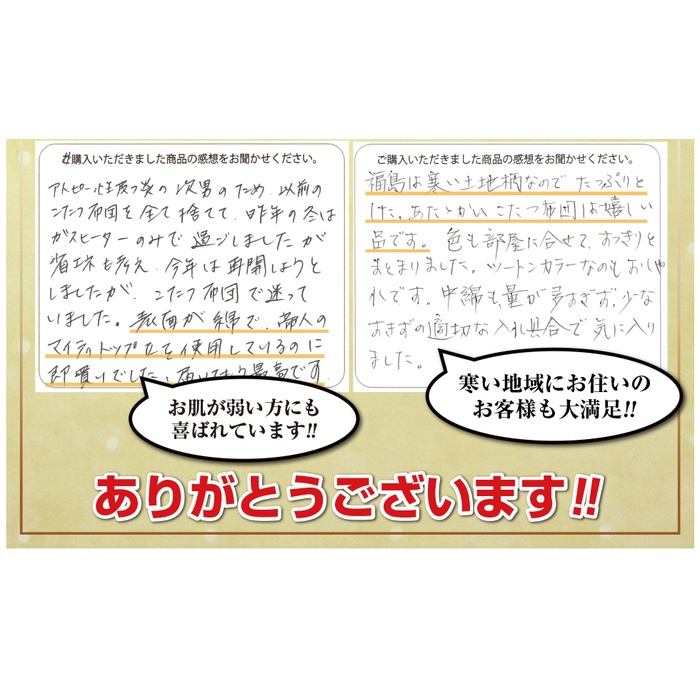 ご購入いただきました商品の感想をお聞かせください。
アトピー性皮フ炎の次男のため、以前の
こたつ布団を全て捨てて、昨年の冬は
ガスヒーターのみで過ごしましたが
省エネも考え、今年は再開しようと
しましたが、こたつ布団で迷って
いました。表面が綿で、帝人の
マイティトップⅡを使用しているのに
即買いでした。届いてより最高です。
お肌が弱い方にも
喜ばれています!!
ご購入いただきました商品の感想をお聞かせください。
福島は寒い土地柄なので たっぷりと
した、あたたかい こたつ布団は嬉しい
品です。色も部屋に合せて、すっきりと
まとまりました。ツートンカラーなのもおしゃ
れです。中綿も量が多すぎず、少な
すぎずの適切な入れ具合で気に入り
ました。
寒い地域にお住いの
お客様も大満足!!
ありがとうございます!!